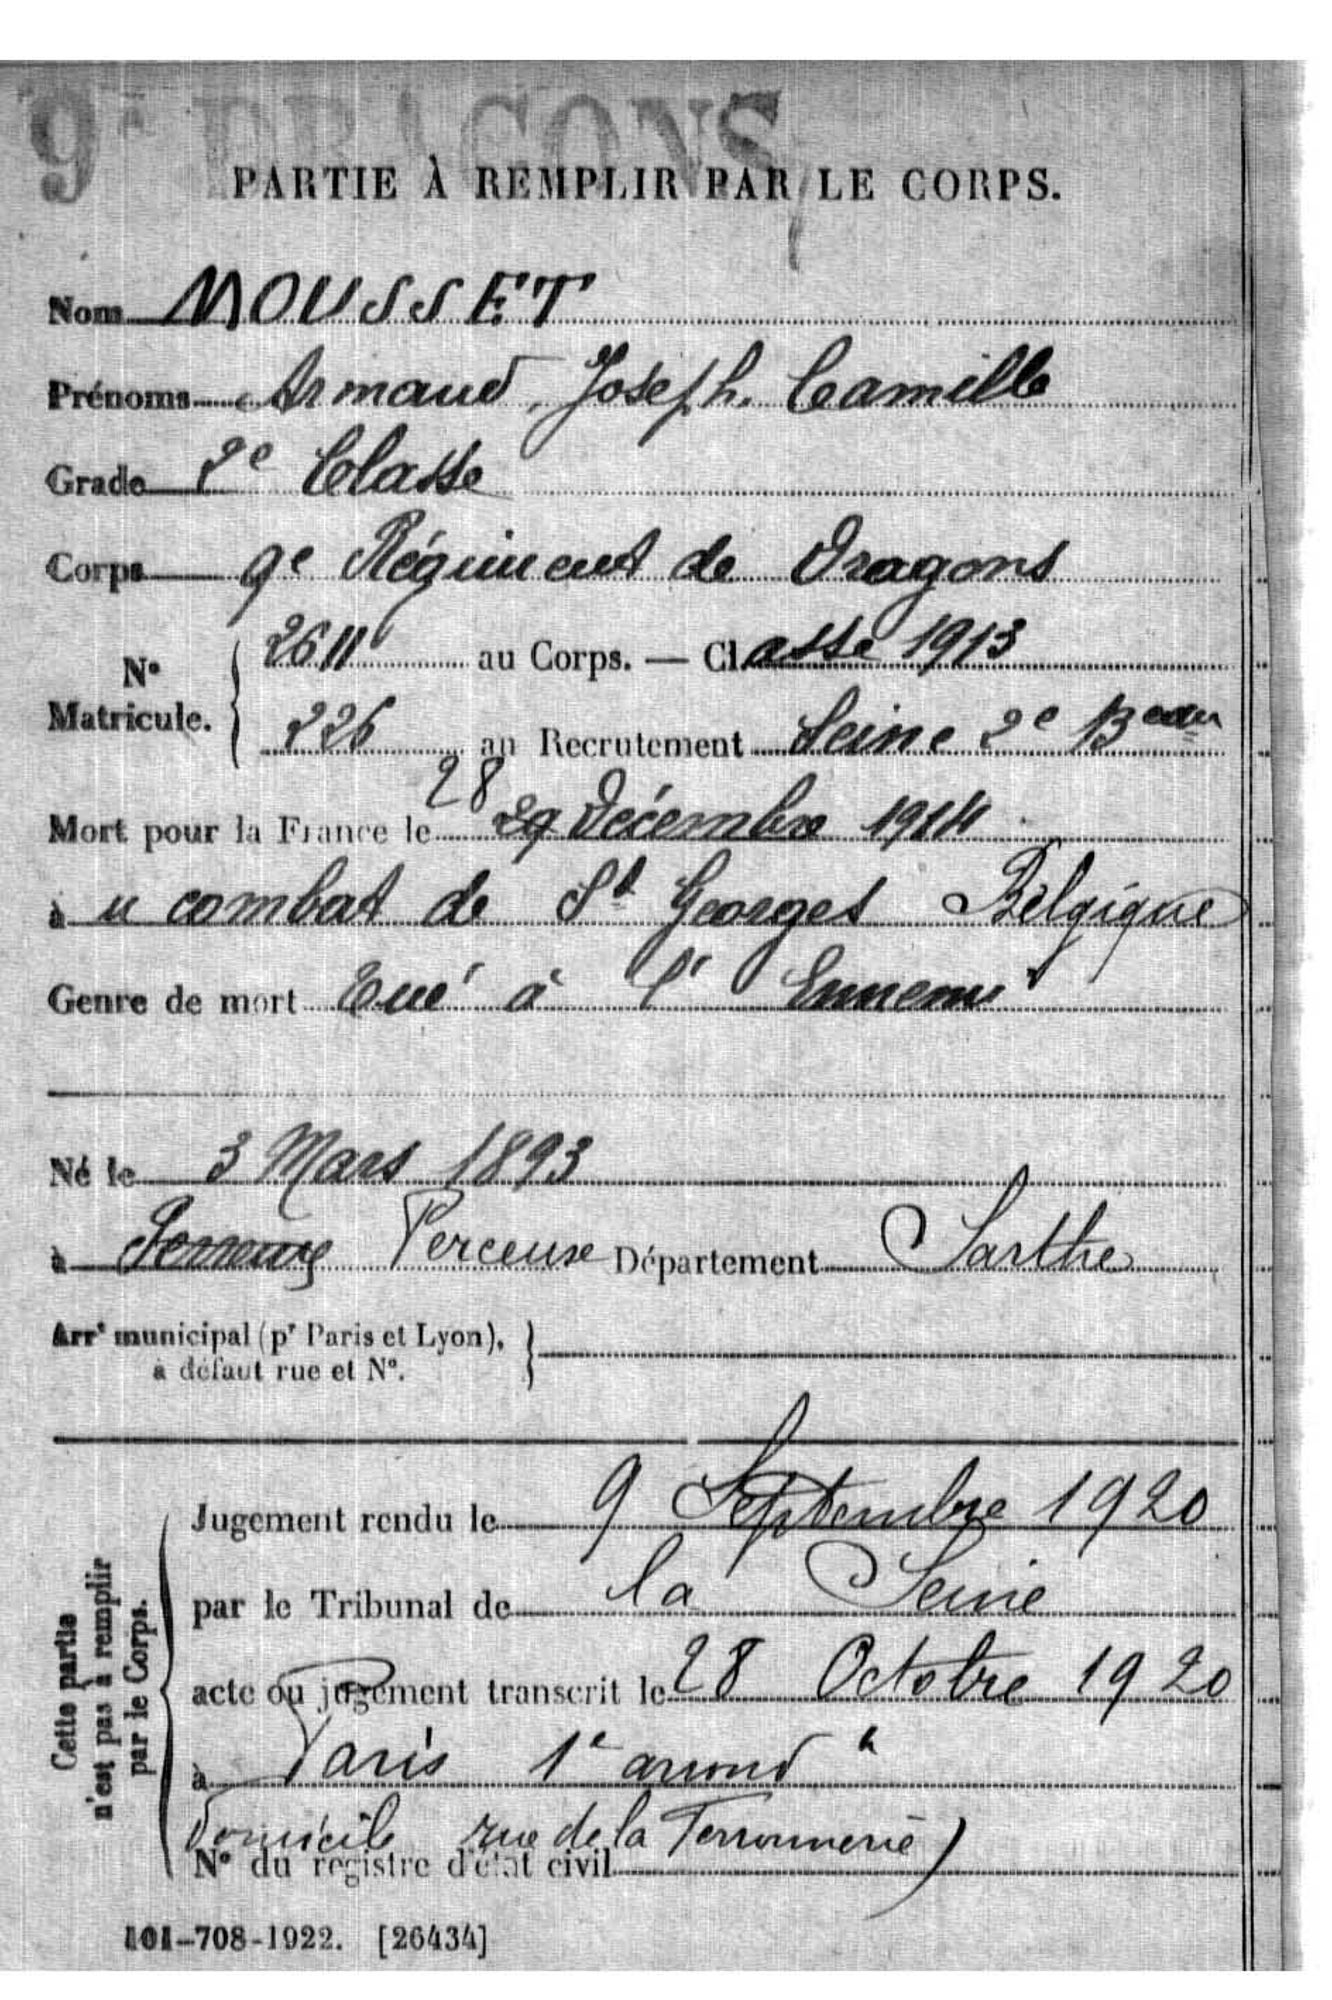 9e DRAGONS
PARTIE À REMPLIR PAR LE CORPS.
Nom MOUSSET
Prénoms Armand, Joseph. Camille
Grade 2e Classe
Corps 9e Régiment de Dragons
No Matricule. 2611 au Corps. — Classe 1913
226 au Recrutement Seine 2e Beau
28
Mort pour la France le 29 Décembre 1914
à u combat de St Georges Belgique
Genre de mort Tué à l'Ennemi
Né le 3 Mars 1893
à Perceuse Département Sarthe
Arrt municipal (pr Paris et Lyon),
à défaut rue et No.
Cette partie
n'est pas à remplir
par le Corps.
Jugement rendu le 9 Septembre 1920
par le Tribunal de la Seine
acte ou jugement transcrit le 28 Octobre 1920
à Paris 1e arrondt
Domicile rue de la Ferronnerie)
No du registre d'état civil
101-708-1922. [26434]